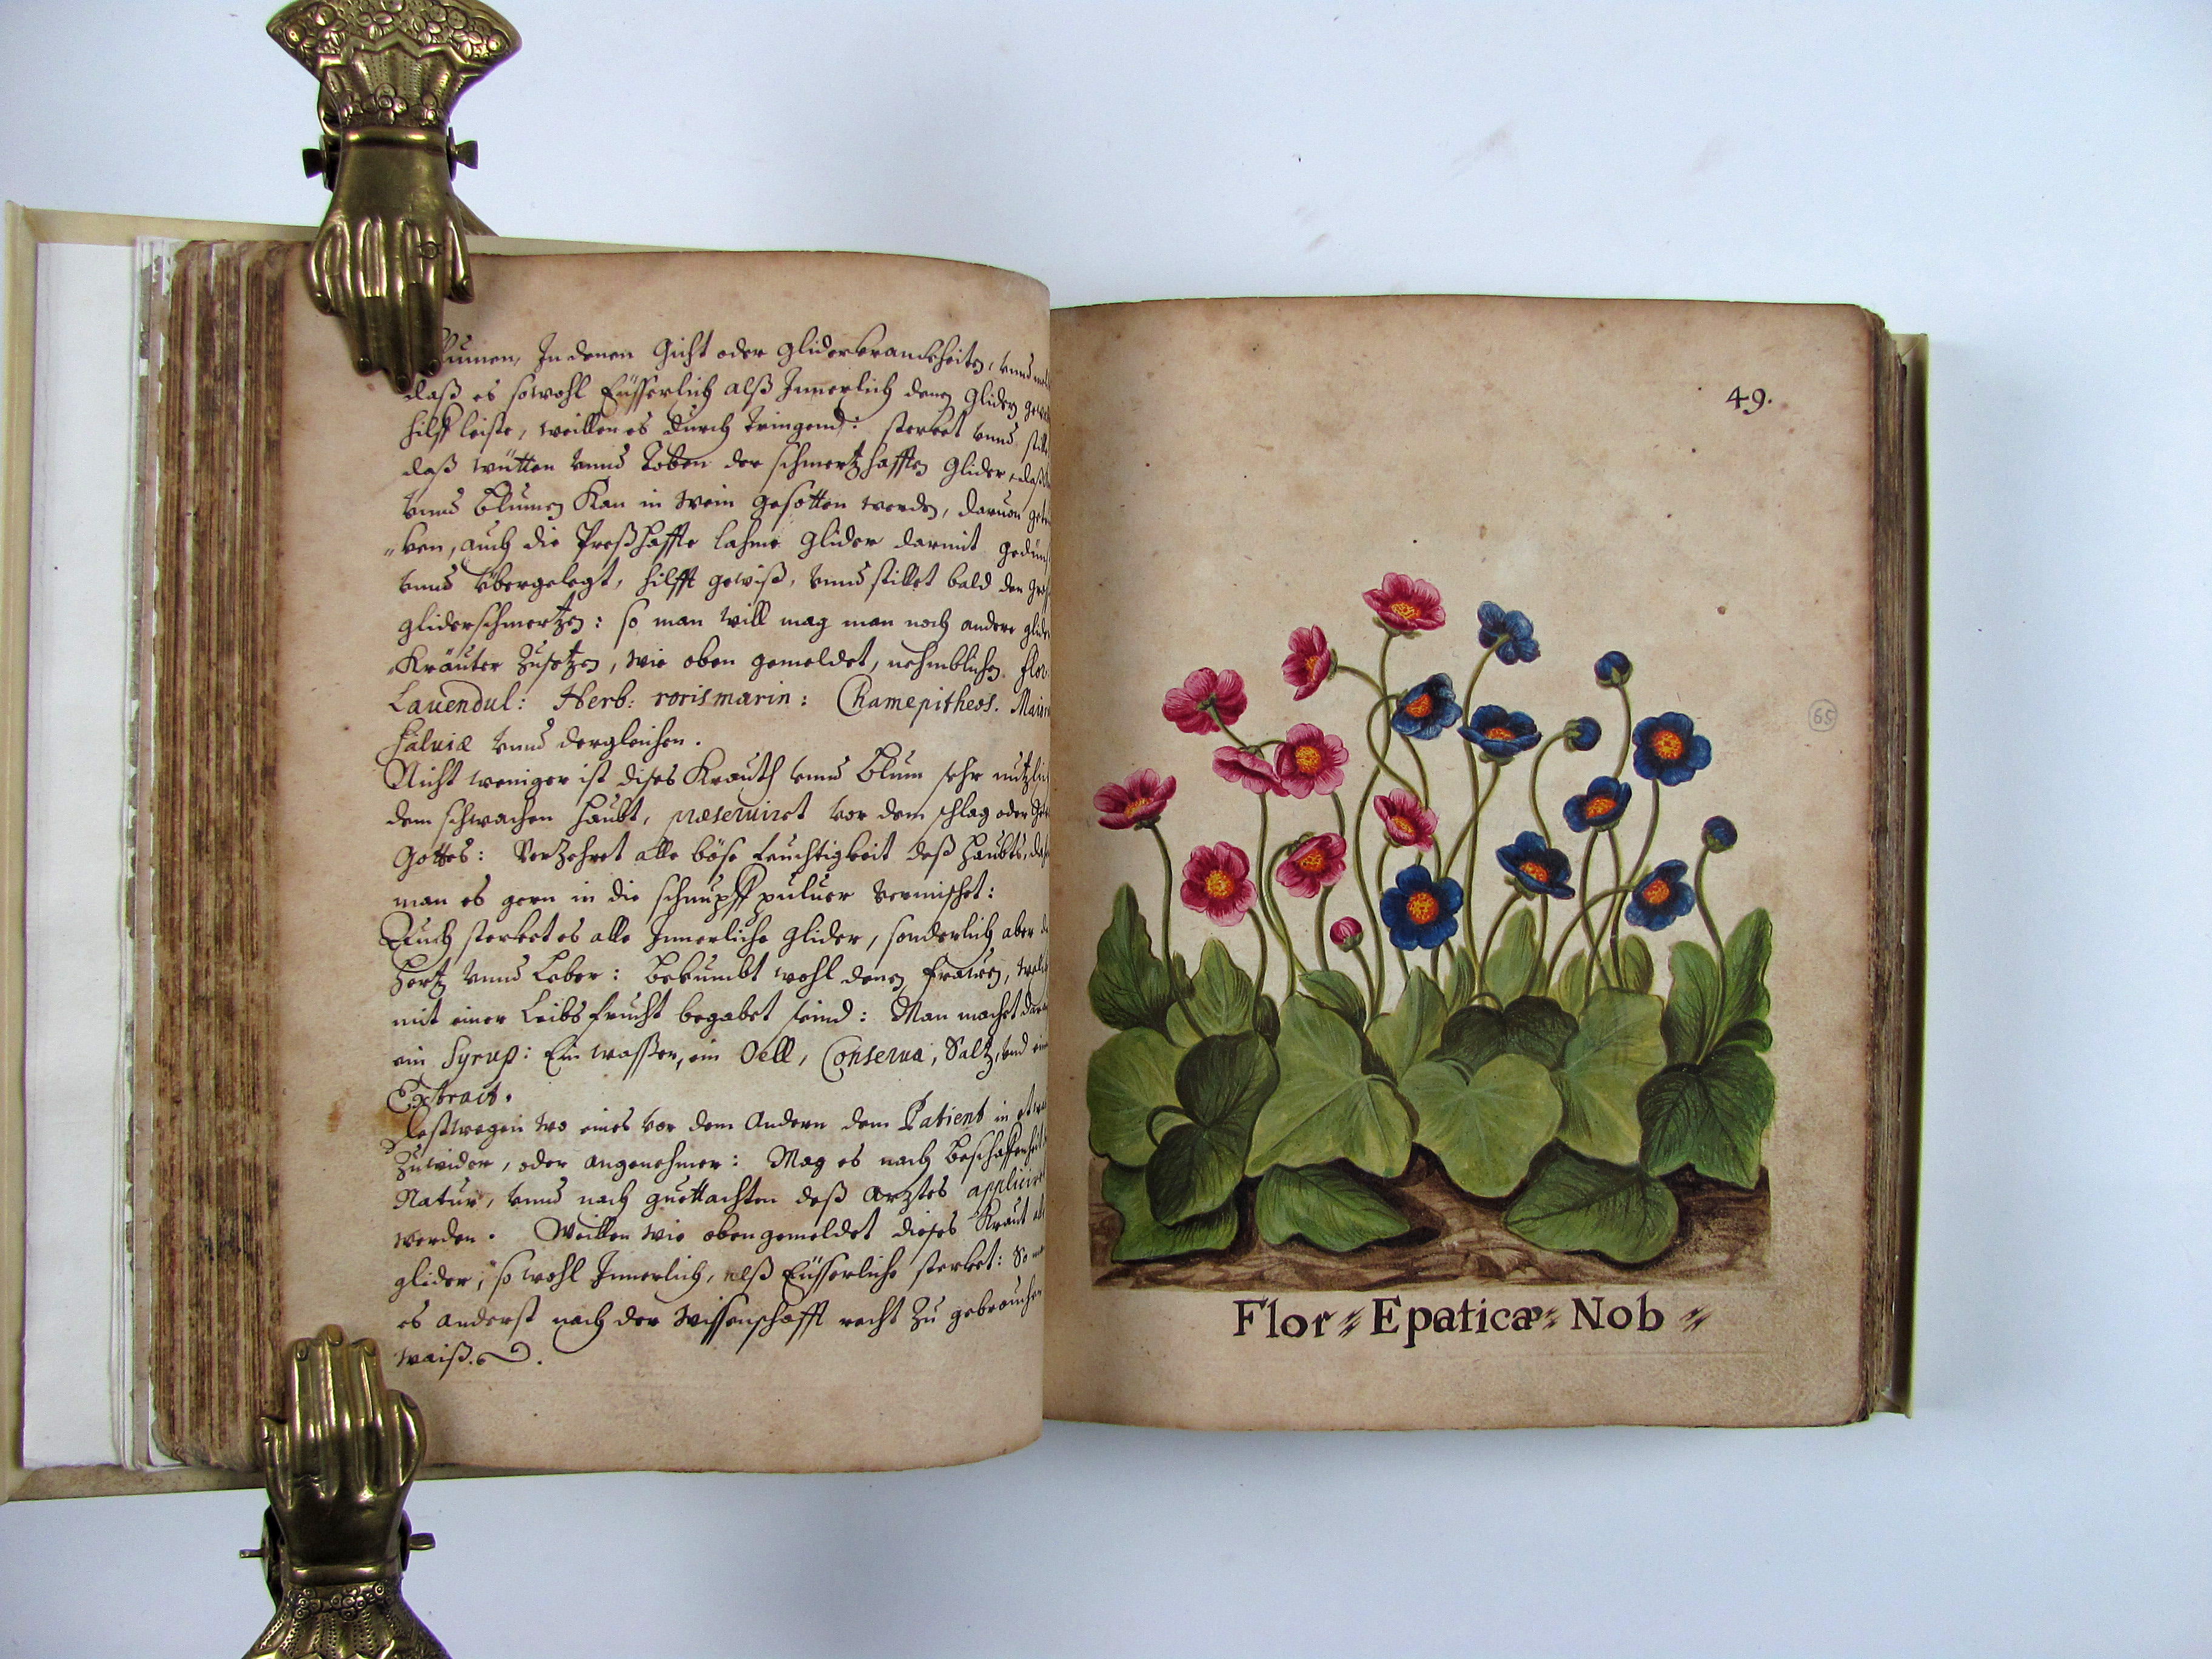 blumen, In denen Gicht oder gliderkranckheiten, vnnd
daß es sowohl Eüsserlich alß Innerlich denen Glidern
hilff leiste, weillen es durch tringend: sterket vnnd still
daß wütten vnnd toben der schmertzhafften Glider, daß
vnnd Blumen Kan in wein gesotten werden, daruon
„ken, auch die Preßhaffte lahme glider darmit
vnnd übergelegt, hilfft gewiß, vnnd stillet bald den
gliderschmertzen: so man will mag man noch andere glider
Kräuter zusetzen, wie oben gemeldet, nehmblichen flor:
Lauendul: Herb: rorismarin: Chamepitheos.
Saluiæ vnnd dergleichen.
Nicht weniger ist dises Krauth vnnd Blum sehr nutzlich
dem schwachen Haubt, præseruiret vor dem schlag oder
Gottes: Verzehret alle böse feuchtigkeit deß Haubts,
man es gern in die schnupff puluer vermischet:
Auch sterket es alle Innerliche glider, sonderlich aber
Hertz vnnd Leber: bekumbt wohl denen frawen,
mit einer Leibsfrucht begabet seind: Man machet
ein Syrup: Ein wasser, ein Oell, Conserua, Saltz, vnd ein
Extract.
Destwegen wo eines vor dem Andern dem Patient in
zuwider, oder angenehmer: Mag es nach beschaffenheit
Natur, vnnd nach guettachten deß Arztes
werden. Weillen wie oben gemeldet dieses Kraut
glider, so wohl Innerlich, alß Eüsserliche sterket: So
es anderst nach der wissenschafft recht zu gebrauchen
waiß.
49.
65
Flor Epaticæ Nob